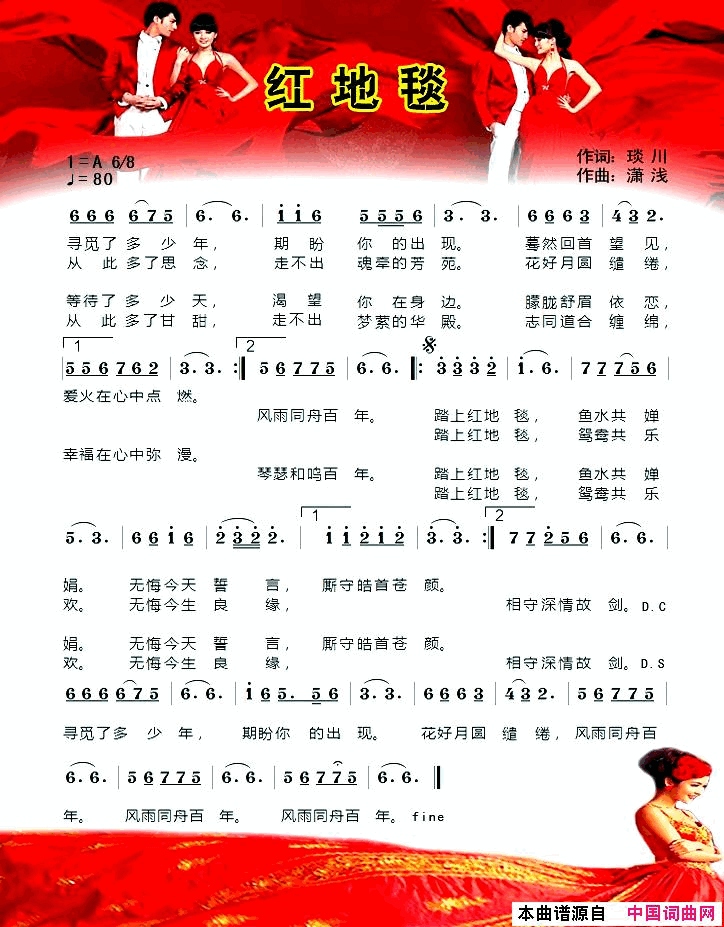 红地毯
1=A 6/8
♩=80
作词：琰川
作曲：潇浅
6 6 6 6 7 5 | 6. 6. | i i 6 5 5 5 6 | 3. 3. | 6 6 6 3 | 4 3 2. |
寻觅了多少年， 期盼 你的出现。 蓦然回首望见，
从此多了思念， 走不出 魂牵的芳苑。 花好月圆缱绻，
等待了多少天 渴望 你在身边。 朦胧舒眉依恋，
从此多了甘甜， 走不出 梦萦的华殿。 志同道合缠绵，
1 2
5 5 6 7 6 2 | 3. 3. :‖ 5 6 7 7 5 | 6. 6. ‖: 3 3 3 3 2 | i. 6. | 7 7 7 5 6 |
爱火在心中点燃。
风雨同舟百年。 踏上红地毯， 鱼水共婵
踏上红地毯， 鸳鸯共乐
幸福在心中弥漫。
琴瑟和鸣百年。 踏上红地毯， 鱼水共婵
踏上红地毯， 鸳鸯共乐
1 2
5. 3. | 6 6 i 6 | 2 3 2 2. | i i 2 i 2 | 3. 3. :‖ 7 7 2 5 6 | 6. 6. |
娟。 无悔今天誓言， 厮守皓首苍颜。
欢。 无悔今生良缘， 相守深情故剑。D.C
娟。 无悔今天誓言， 厮守皓首苍颜。
欢。 无悔今生良缘， 相守深情故剑。D.S
6 6 6 6 7 5 | 6. 6. | i 6 5. 5 6 | 3. 3. | 6 6 6 3 | 4 3 2. | 5 6 7 7 5 |
寻觅了多少年， 期盼你的出现。 花好月圆缱绻，风雨同舟百
6. 6. | 5 6 7 7 5 | 6. 6. | 5 6 7 7 5 | 6. 6. ‖
年。 风雨同舟百年。 风雨同舟百年。fine
本曲谱源自 中国词曲网